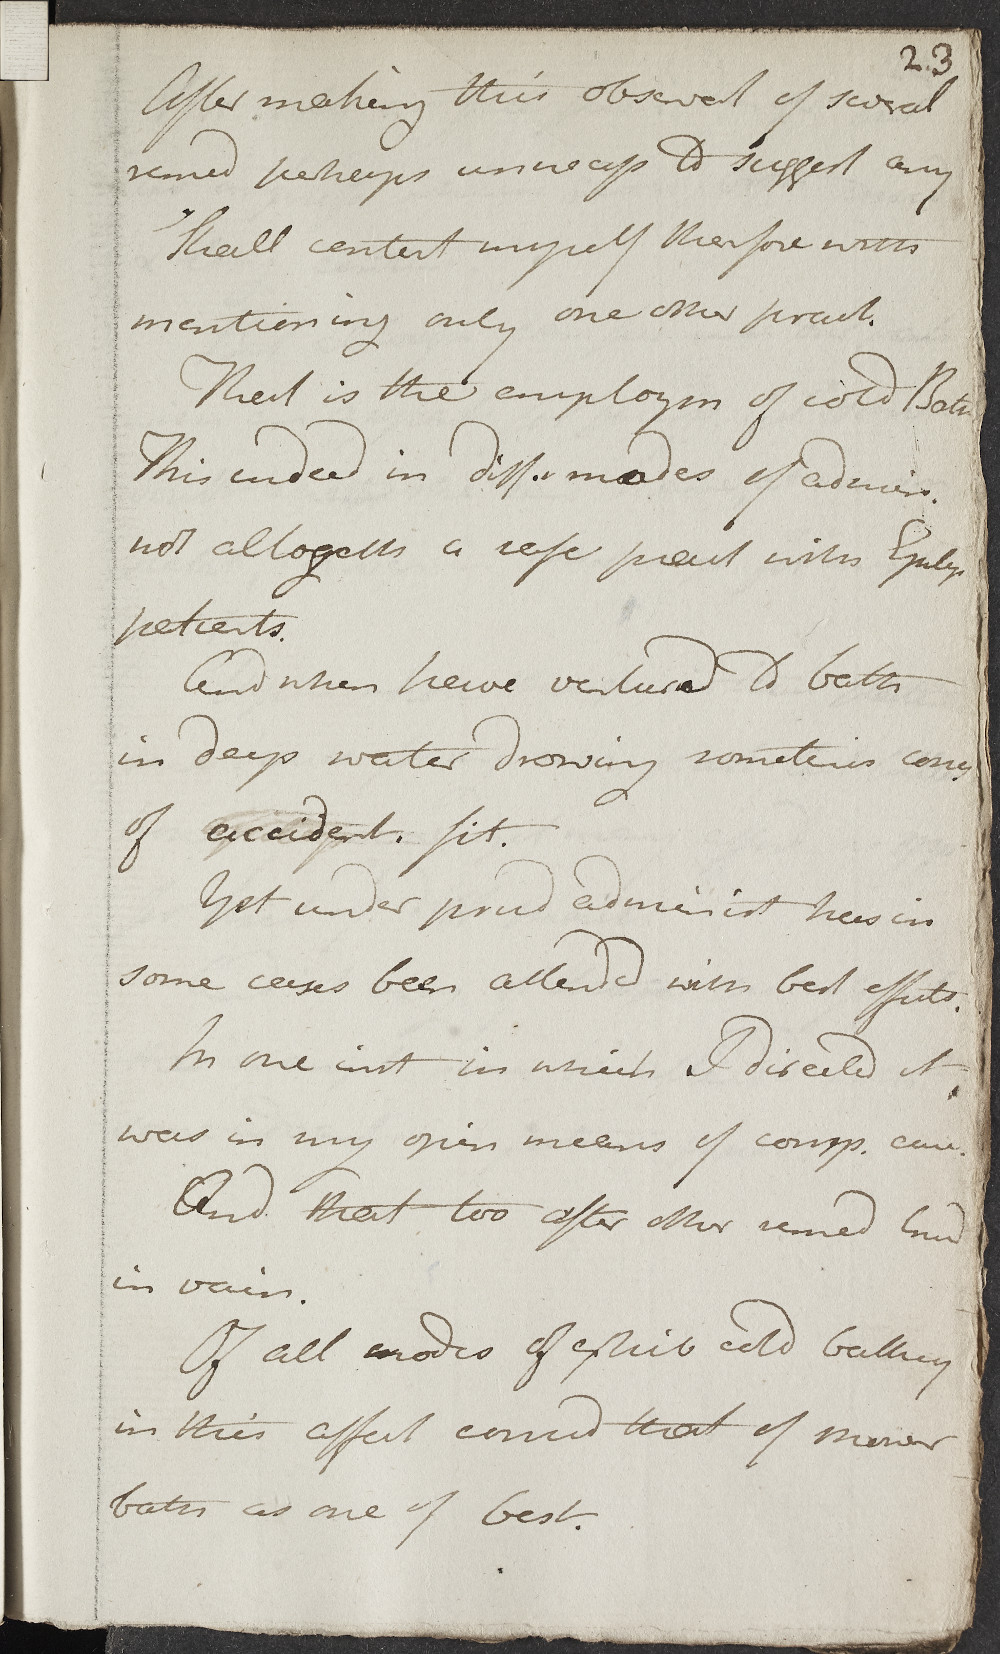 23
After making this observat of several
remed perhaps unnecess to suggest any
Shall content myself therfore with
mentioning only one other pract.
That is the employm of cold Bath
This indeed in diff. modes of admin.
not altogeth a safe pract with Epilep
patients.
And when have ventured to bath
in deep water drowing sometimes conseq
of accident. fit.
Yet under prud administ has in
some cases been attended with best effects.
In one inst in which I directed it,
was in my opin means of comp. cure.
And that too after other remed tried
in vain.
Of all modes of exhib cold bathing
in this affect consid that of shower
bath as one of best.